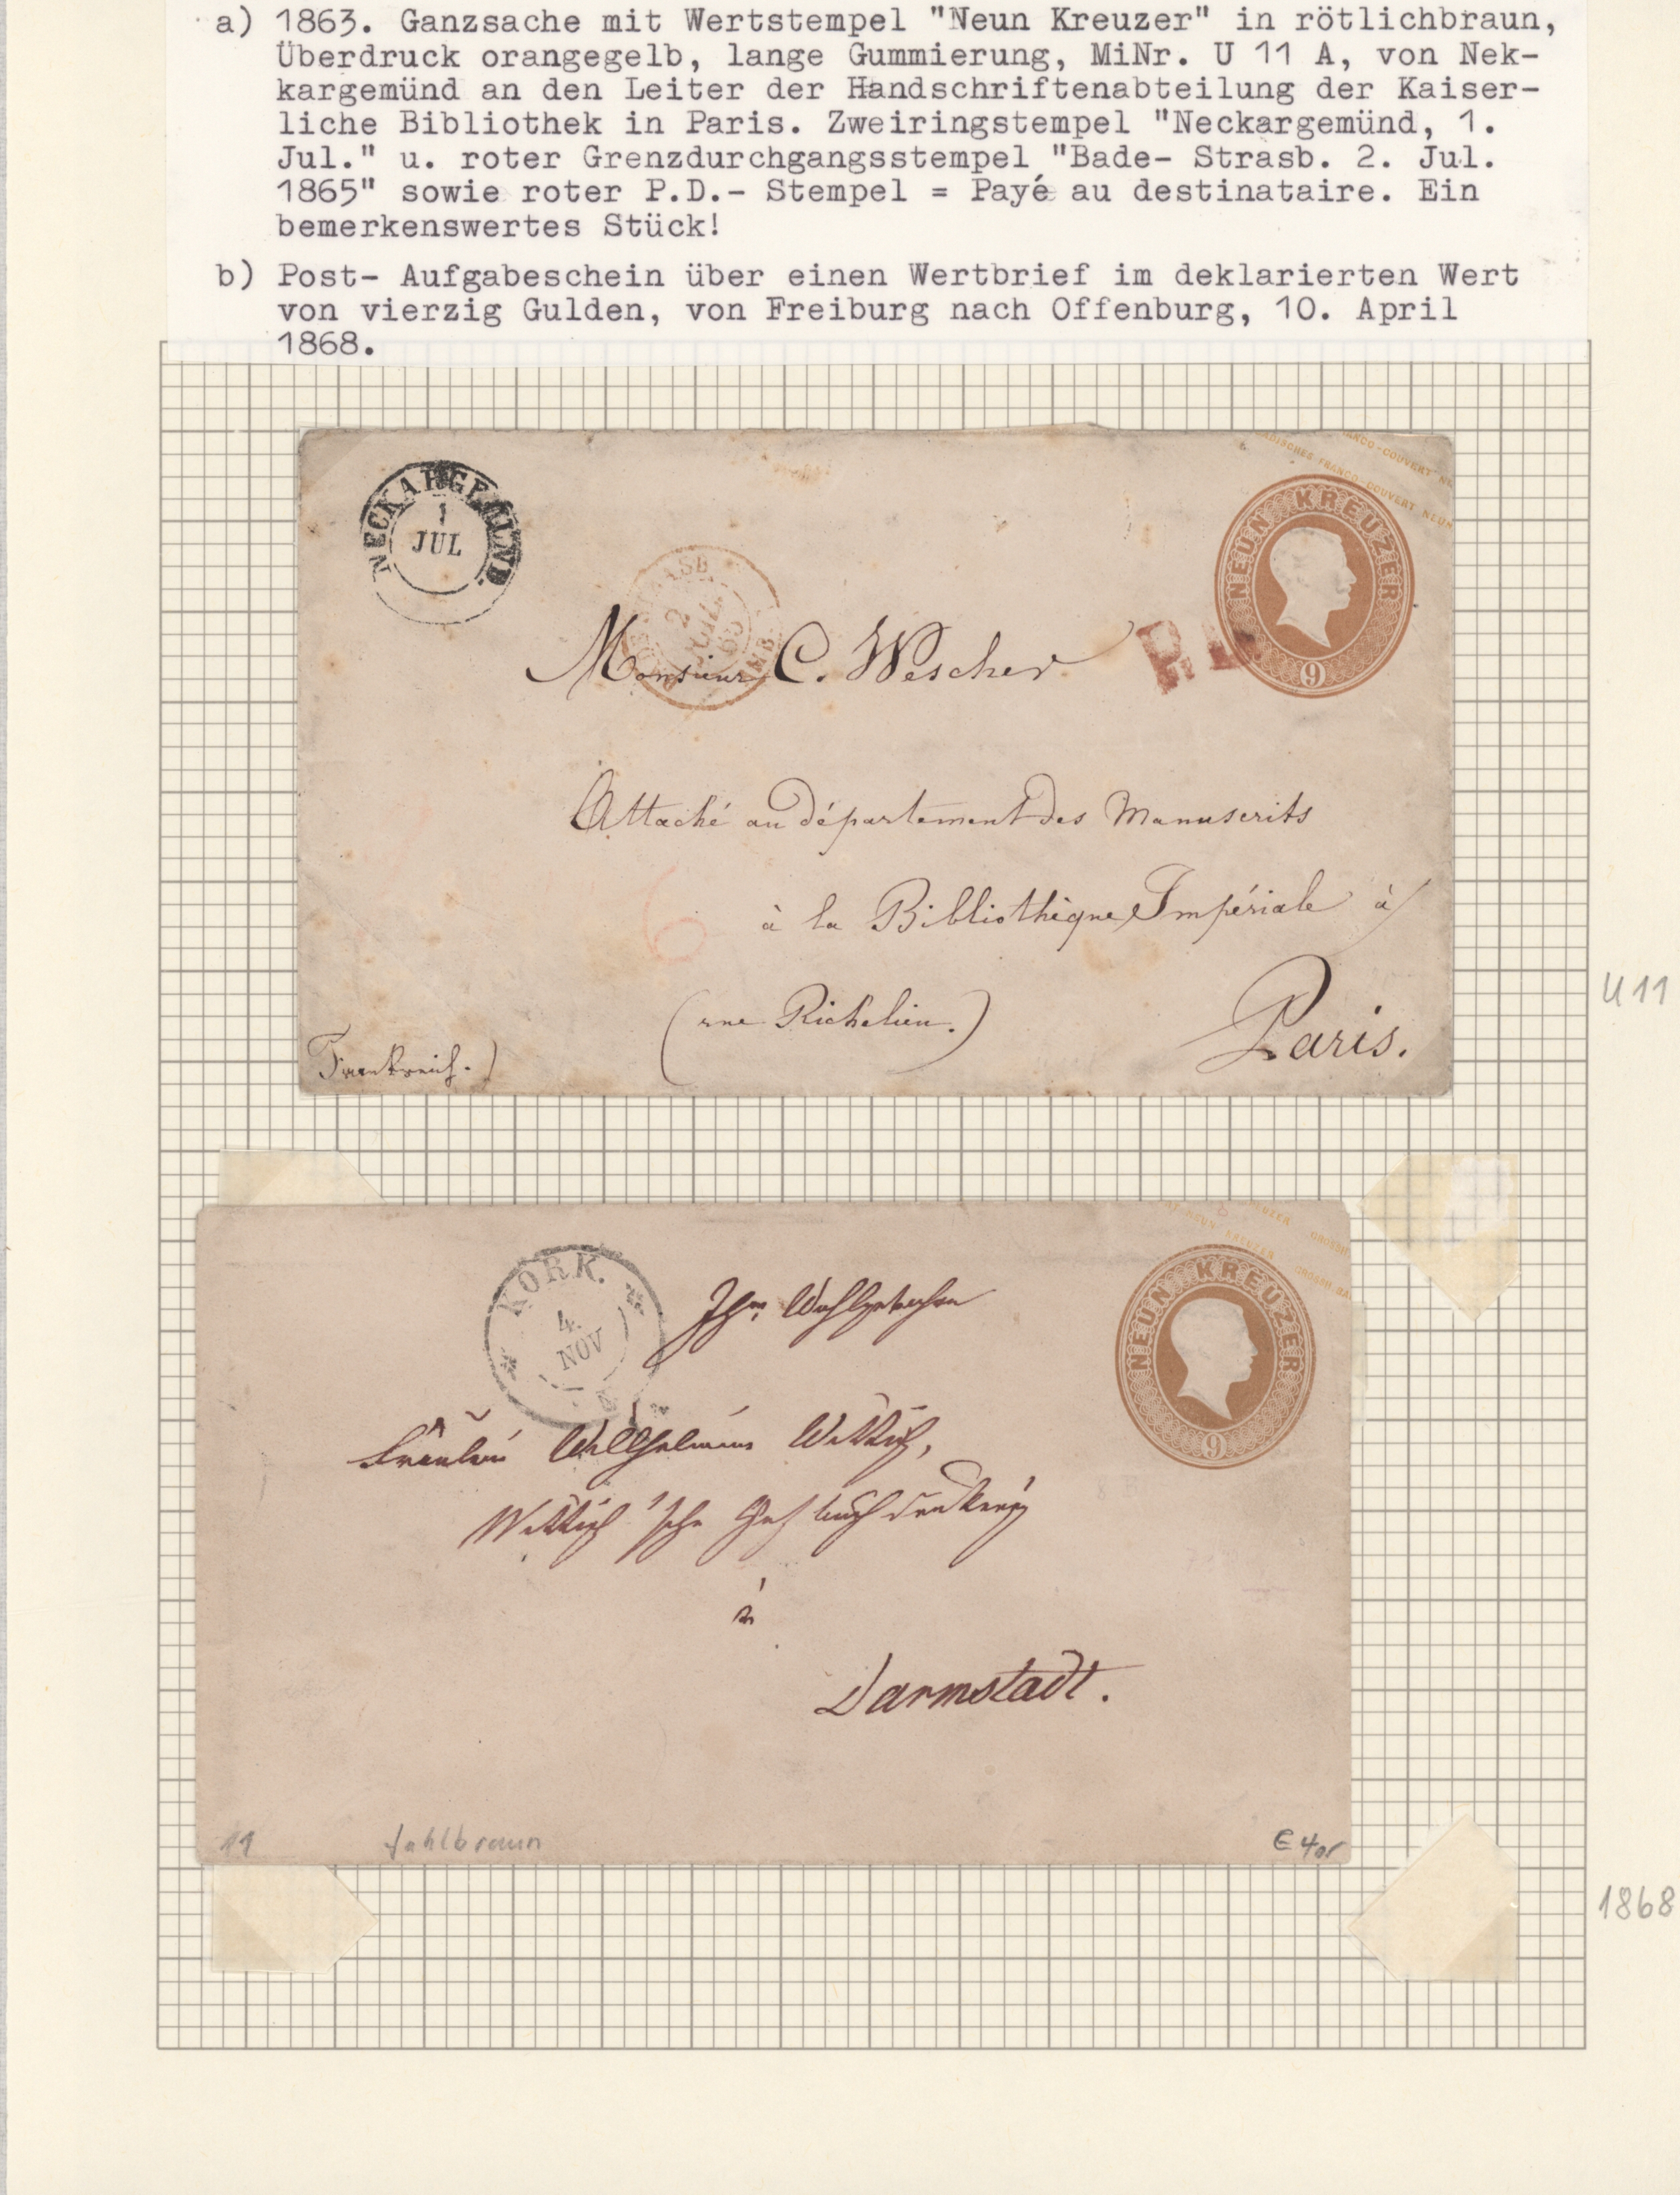 a) 1863. Ganzsache mit Wertstempel "Neun Kreuzer" in rötlichbraun,
Überdruck orangegelb, lange Gummierung, MiNr. U 11 A, von Nek-
kargemünd an den Leiter der Handschriftenabteilung der Kaiser-
liche Bibliothek in Paris. Zweiringstempel "Neckargemünd, 1.
Jul." u. roter Grenzdurchgangsstempel "Bade- Strasb. 2. Jul.
1865" sowie roter P.D.- Stempel = Payé au destinataire. Ein
bemerkenswertes Stück!
b) Post- Aufgabeschein über einen Wertbrief im deklarierten Wert
von vierzig Gulden, von Freiburg nach Offenburg, 10. April
1868.
FRANCO-COUVERT
BADISCHES FRANCO-COUVERT NEUN
NECKARGEMÜND
1
JUL
STRASB.
2
JUIL
65
NEUN KREUZER
9
P.D.
Monsieur C. Wescher
Attaché au département des Manuscrits
à la Bibliothèque Impériale à
6
(rue Richelieu.)
Paris.
Frankreich.)
U 11
KORK.
4.
NOV
NEUN KREUZER
9
Fräulein Wilhelmine Wittich,
Wittich'sche Hofbuchdruckerei
à
Darmstadt.
11
fahlbraun
1868